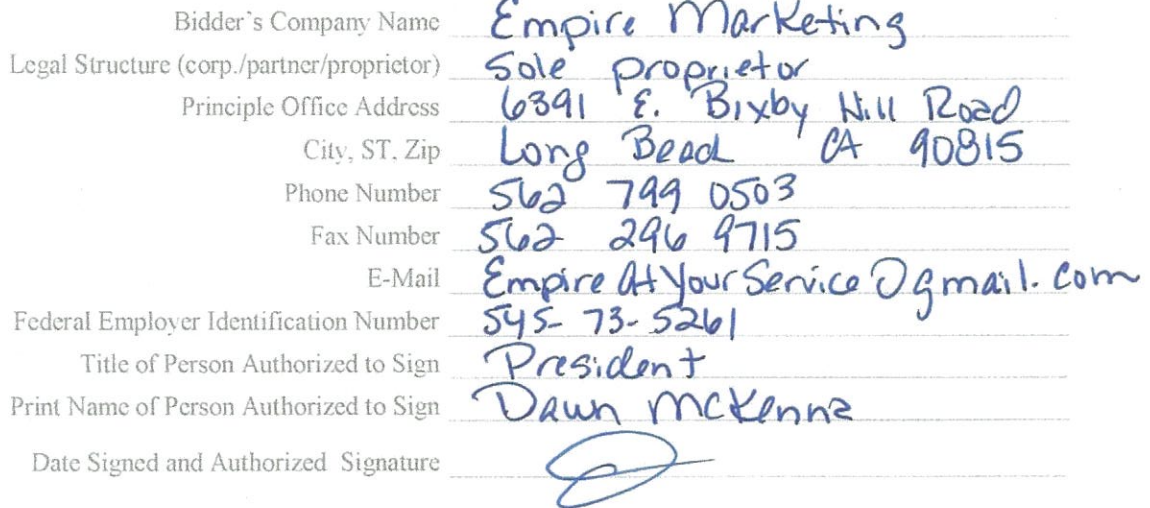 Bidder's Company Name Empire Marketing
Legal Structure (corp./partner/proprietor) Sole proprietor
Principle Office Address 6391 E. Bixby Hill Road
City, ST. Zip Long Beach CA 90815
Phone Number 562 799 0503
Fax Number 562 296 9715
E-Mail EmpireAtYourService@gmail.com
Federal Employer Identification Number 545-73-5261
Title of Person Authorized to Sign President
Print Name of Person Authorized to Sign Dawn McKenna
Date Signed and Authorized Signature